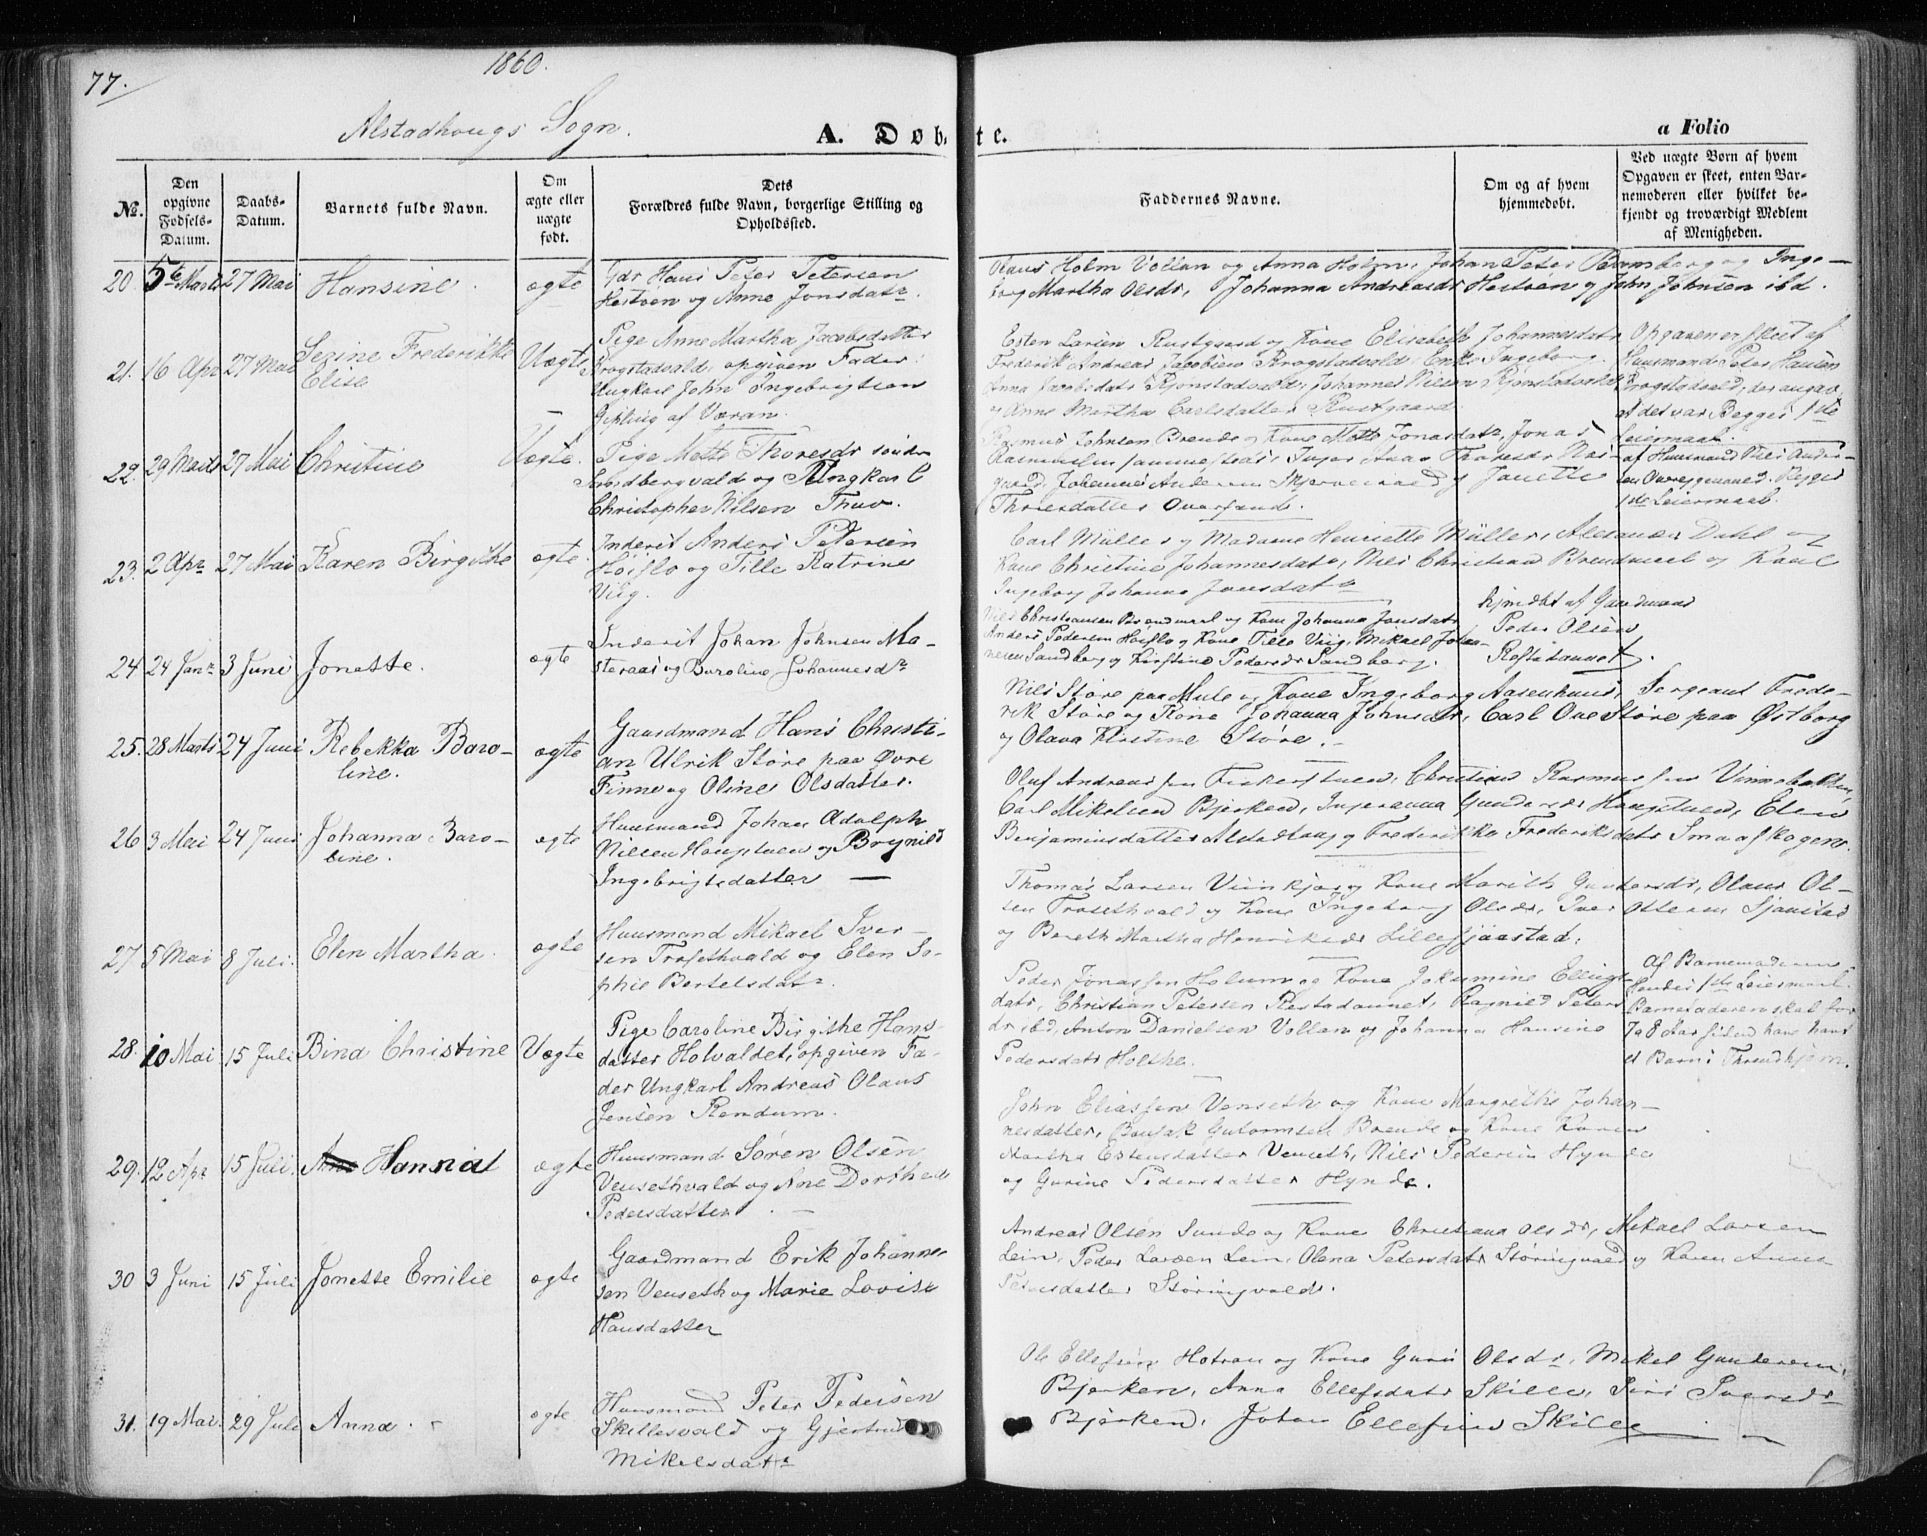 77.
1860.
Alstadhougs Sogn.
A. Døbte.
a Folio
No.
Den opgivne Fødsels-Datum.
Daabs-Datum.
Barnets fulde Navn.
Om ægte eller uægte født.
Dets Forældres fulde Navn, borgerlige Stilling og Opholdssted.
Faddernes Navne.
Om og af hvem hjemmedøbt.
Ved uægte Børn af hvem Opgaven er skeet, enten Barnemoderen eller hvilket bekjendt og troværdigt Medlem af Menigheden.
20. 5te Marts 27 Mai Hansine. ægte
Gdr Hans Peter Petersen
Hestven og Anne Jonsdatr.
Olaus Holm Vollan og Anna Holm, Johan Peter Bamberg og Inge-
borg Martha Olsdr, Johanna Andreasdr Hestven og John Johnsen ibd.
21. 16 Apr 27 Mai Sezine Frederikke
Elise
Uægte
Pige Anne Martha Jacobsdatter
Krogstadvald, opgiven Fader:
Ungkarl John Ingebrigtsen
Gipling af Væran.
Esten Larsen Rustgaard og Kone Elisabeth Johannesdatr
Frederik Andreas Jacobsen Krogstadvald, Enke Ingeborg
Johannes Nilsen
og Anne Martha Carlsdatter Rustgaard
Opgaven er skeet af
Huusmand Peter Hansen
Krogstadvald, der angav
at det var Begges 1ste
Leiermaal.
22. 29 Marts 27 Mai Christine Uægte.
Pige Mette Thoresdr søndre
Sandbergvald og Ungkarl
Christopher Nilsen Thuv.
Rasmus Johnsen Brende og Kone Mette Jonasdatr, Jonas
Rasmussen sammesteds, Inger Anna Thoresdr
Johannes Andersen og Janette
Thoresdatter Oversande.
af Huusmand Nils Ander-
sen Begges
1ste Leiermaal.
23. 2 Apr 27 Mai Karen Birgithe ægte
Inderst Anders Pedersen
Høiflo og Tille Katrine
Viig.
Carl Müller og Madame Henriette Müller, Alexander Dahl og
Kone Christine Johannesdatr, Nils Christian Brendmoel og Kone
Ingeborg Johanna Jonsdatr
24 24 Janr 3 Juni Jonette. ægte
Inderst Johan Johnsen Mo-
steraas og Baroline Johannesdr
Nils Christiansen Brandmoel og Kone Johanna Jonsdatr
Anders Pedersen Høiflo og Kone Tille Viig, Mikael Johan-
nesen Sandberg og Kirstine Pedersdr Sandberg.
hjmdøbt af Gaardmand
Peder Olsen
Røstadaunet.
25. 28 Marts 24 Juni Rebekka Baro-
line.
ægte
Gaardmand Hans Christi-
an Ulrik Støre paa Øvre
Finne og Oline Olsdatter.
Nils Støre paa Mule og Kone Ingeborg Aasenhuus, Sergeant Frede-
rik Støre og Kone Johanna Johnsdr, Carl Ove Støre paa Østborg
og Olava Kirstine Støre.
26 3 Mai 24 Juni Johanna Baro-
line.
ægte
Huusmand Johan Adolph
Nilsen Hougtuen og Brynild
Ingebrigtsdatter
Oluf Andreassen Fiskerstuen, Christian Rasmussen Vinnebakken,
Carl Mikelsen Bjørken, Ingeranna Gundersdr Hougstuen, Elen
Benjaminsdatter Alstadhoug og Frederikke Frederiksdatr Smaaskogene.
27 5 Mai 8 Juli. Elen Martha. ægte
Huusmand Mikael Iver-
sen Trosethvald og Elen So-
phie Bertelsdatr.
Thomas Larsen Viinkjær og Kone Marith Gundersdr, Olaus Ol-
sen Trosethvald og Kone Ingeborg Olsdr, Iver Ottersen Sjaastad
og Bereth Martha Henriksdr Lillesjaastad.
28. 10 Mai 15 Juli Bina Christine Uægte
Pige Caroline Birgithe Hans-
datter Holvaldet, opgiven Fa-
der Ungkarl Andreas Olaus
Jensen Rendum.
Peder Jonassen Holum og Kone Jokumine Ellings-
datr, Christian Petersen Røstadaunet, Ragnild Peters-
dr ibd, Anton Danielsen Vollan og Johanna Hansine
Pedersdatr Holthe.
Af Barnemoderen
hendes 1ste Leiermaal.
Barnefaderen skal for
7 a 8 Aar siden have havt
et Barn i Throndhjem.
29. 12 Apr 15 Juli. Hansial ægte
Huusmand Søren Olsen
Vensethvald og Ane Dorthea
Pedersdatter
John Eliassen Venseth og Kone Margrethe Johan-
nesdatter, Guttormsen Brende og Kone Karen
Martha Estensdatter Venseth, Nils Pedersen Hynde
og Gurine Pedersdatter Hynde.
30 3 Juni 15 Juli Jonette Emilie ægte
Gaardmand Erik Johanne-
sen Venseth og Marie Lovise
Hansdatter
Andreas Olsen Sunde og Kone Christiana Olsdr, Mikael Larsen
Lein, Peder Larsen Lein, Olena Petersdatr Størringvald og Karen Anna
Petersdatter Størringvald.
31. 19 Mai. 29 Juli Anna. ægte
Huusmand Peter Pedersen
Skillesvald og Gjertrud
Mikelsdatr
Ole Ellefsen Hotran og Kone Guru Olsdr, Mikel Gundersen
Bjørken, Anna Ellefsdatr Skille, Siri
Bjørken, Johan Ellefsen Skille